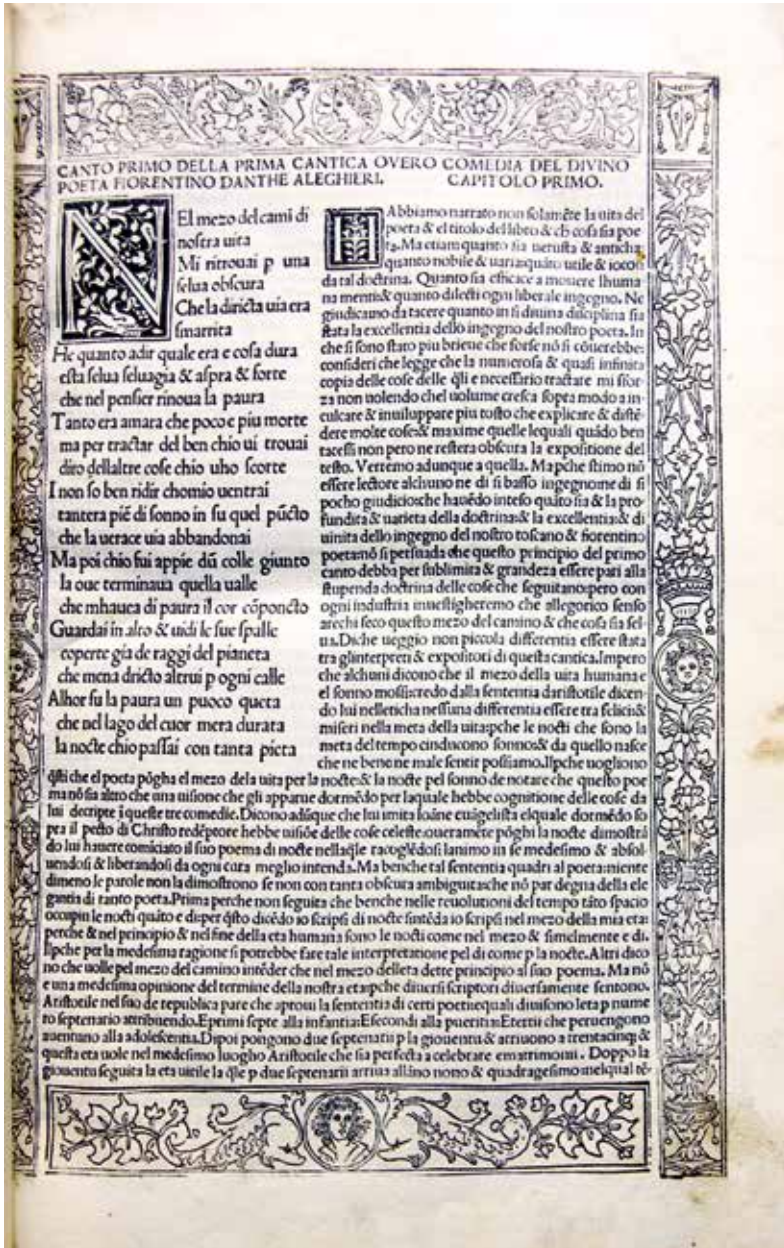 CANTO PRIMO DELLA PRIMA CANTICA OVERO COMEDIA DEL DIVINO
POETA FIORENTINO DANTHE ALEGHIERI. CAPITOLO PRIMO.
NEl mezo del cami di
nostra uita
Mi ritrouai p una
selua obscura
Che la diricta uia era
smarrita
He quanto adir quale era e cosa dura
esta selua seluagia & aspra & forte
che nel pensier rinoua la paura
Tanto era amara che poco e piu morte
ma per tractar del ben chio ui trouai
diro dellaltre cose chio uho scorte
I non so ben ridir chomio uentrai
tantera pié di sonno in su quel pũcto
che la uerace uia abbandonai
Ma poi chio fui appie dũ colle giunto
la oue terminaua quella ualle
che mhauea di paura il cor cõpuncto
Guardai in alto & uidi le sue spalle
coperte gia de raggi del pianeta
che mena dricto altrui p ogni calle
Alhor fu la paura un puoco queta
che nel lago del cuor mera durata
la nocte chio passai con tanta pieta
HAbbiamo narrato non solamẽte la uita del
poeta & el titolo del libro & ch cosa sia poe
ta. Ma etiam quanto sia uetusta & anticha:
quanto nobile & uaria: quãto utile & iocon
da tal doctrina. Quanto sia efficace a mouere lhuma
na menti: & quanto dilecti ogni liberale ingegno. Ne
giudicano da tacere quanto in si diuina disciplina sia
stata la excellentia dello ingegno del nostro poeta. In
che si sono stato piu brieue che forse nõ si cõuerebbe:
consideri che legge che la numerosa & quasi infinita
copia delle cose delle q̃li e necessario tractare mi sfor
za non uolendo chel uolume cresca sopra modo a in
culcare & inuiluppare piu tosto che explicare & distẽ
dere molte cose: & maxime quelle lequali quãdo ben
tacessi non pero ne restera obscura la expositione del
testo. Verremo adunque a quella. Ma pche stimo nõ
essere lectore alchuno ne di si basso ingegno: ne di si
pocho giudicio: che hauẽdo inteso quãto sia & la pro
fundita & uarieta della doctrina: & la excellentia: & di
uinita dello ingegno del nostro toscano & fiorentino
poeta: nõ si persuada che questo principio del primo
canto debba per sublimita & grandeza essere pari alla
stupenda doctrina delle cose che seguitano: pero con
ogni industria inuestigheremo che allegorico senso
arechi seco questo mezo del camino & che cosa sia sel
ua. Diche ueggio non piccola differentia essere stata
tra glinterpreti & expositori di questa cantica. Impero
che alchuni dicono che il mezo della uita humana e
el sonno mossi: credo dalla sententia daristotile dicen
do lui nelleticha nessuna differentia essere tra felici: &
miseri nella meta della uita: pche le nocti che sono la
meta del tempo cinducono sonno: & da quello nasce
che ne bene ne male sentir possiamo. Ilpche uogliono
q̃sti che el poeta põgha el mezo dela uita per la nocte: & la nocte pel sonno de notare che questo poe
ma nõ sia altro che una uisione che gli apparue dormẽdo per laquale hebbe cognitione delle cose da
lui decripte ĩ queste tre comedie. Dicono adũque che lui imita Ioãne euãgelista elquale dormẽdo so
pra il pecto di Christo redẽptore hebbe uisiõe delle cose celeste: oueramẽte põghi la nocte dimostrã
do lui hauere comiciato il suo poema di nocte nellaq̃le racoglẽdosi lanimo in se medesimo & absol
uendosi & liberandosi da ogni cura meglio intenda. Ma benche tal sententia quadri al poeta: niente
dimeno le parole non la dimostrono se non con tanta obscura ambiguita: che nõ par degna della ele
gantia di tanto poeta. Prima perche non seguita che benche nelle reuolutioni del tempo tãto spacio
occupin le nocti quãto e di: per q̃sto dicẽdo io scripsi di nocte sintẽda io scripsi nel mezo della mia eta:
perche & nel principio & nel fine della eta humana sono le nocti come nel mezo & similmente e di.
Ilpche per la medesima ragione si potrebbe fare tale interpretatione pel di come p la nocte. Altri dico
no che uolle pel mezo del camino intẽder che nel mezo delleta dette principio al suo poema. Ma nõ
e una medesima opinione del termine della nostra eta: pche diuersi scriptori diuersamente sentono.
Aristotile nel suo de republica pare che aproui la sententia di certi poeti: equali diuisono leta p nume
ro septenario attribuendo. E primi septe alla infantia: E secondi alla pueritia: E tertii che peruengono
auentuno alla adolescentia. Dipoi pongono due septenarii p la giouentu & arriuono a trentacinq; &
questa eta uole nel medesimo luogho Aristotile che sia perfecta a celebrare e matrimoni. Doppo la
giouentu seguita la eta uirile la q̃le p due septenarii arriua allãno nono & quadragesimo: nelqual tẽ-